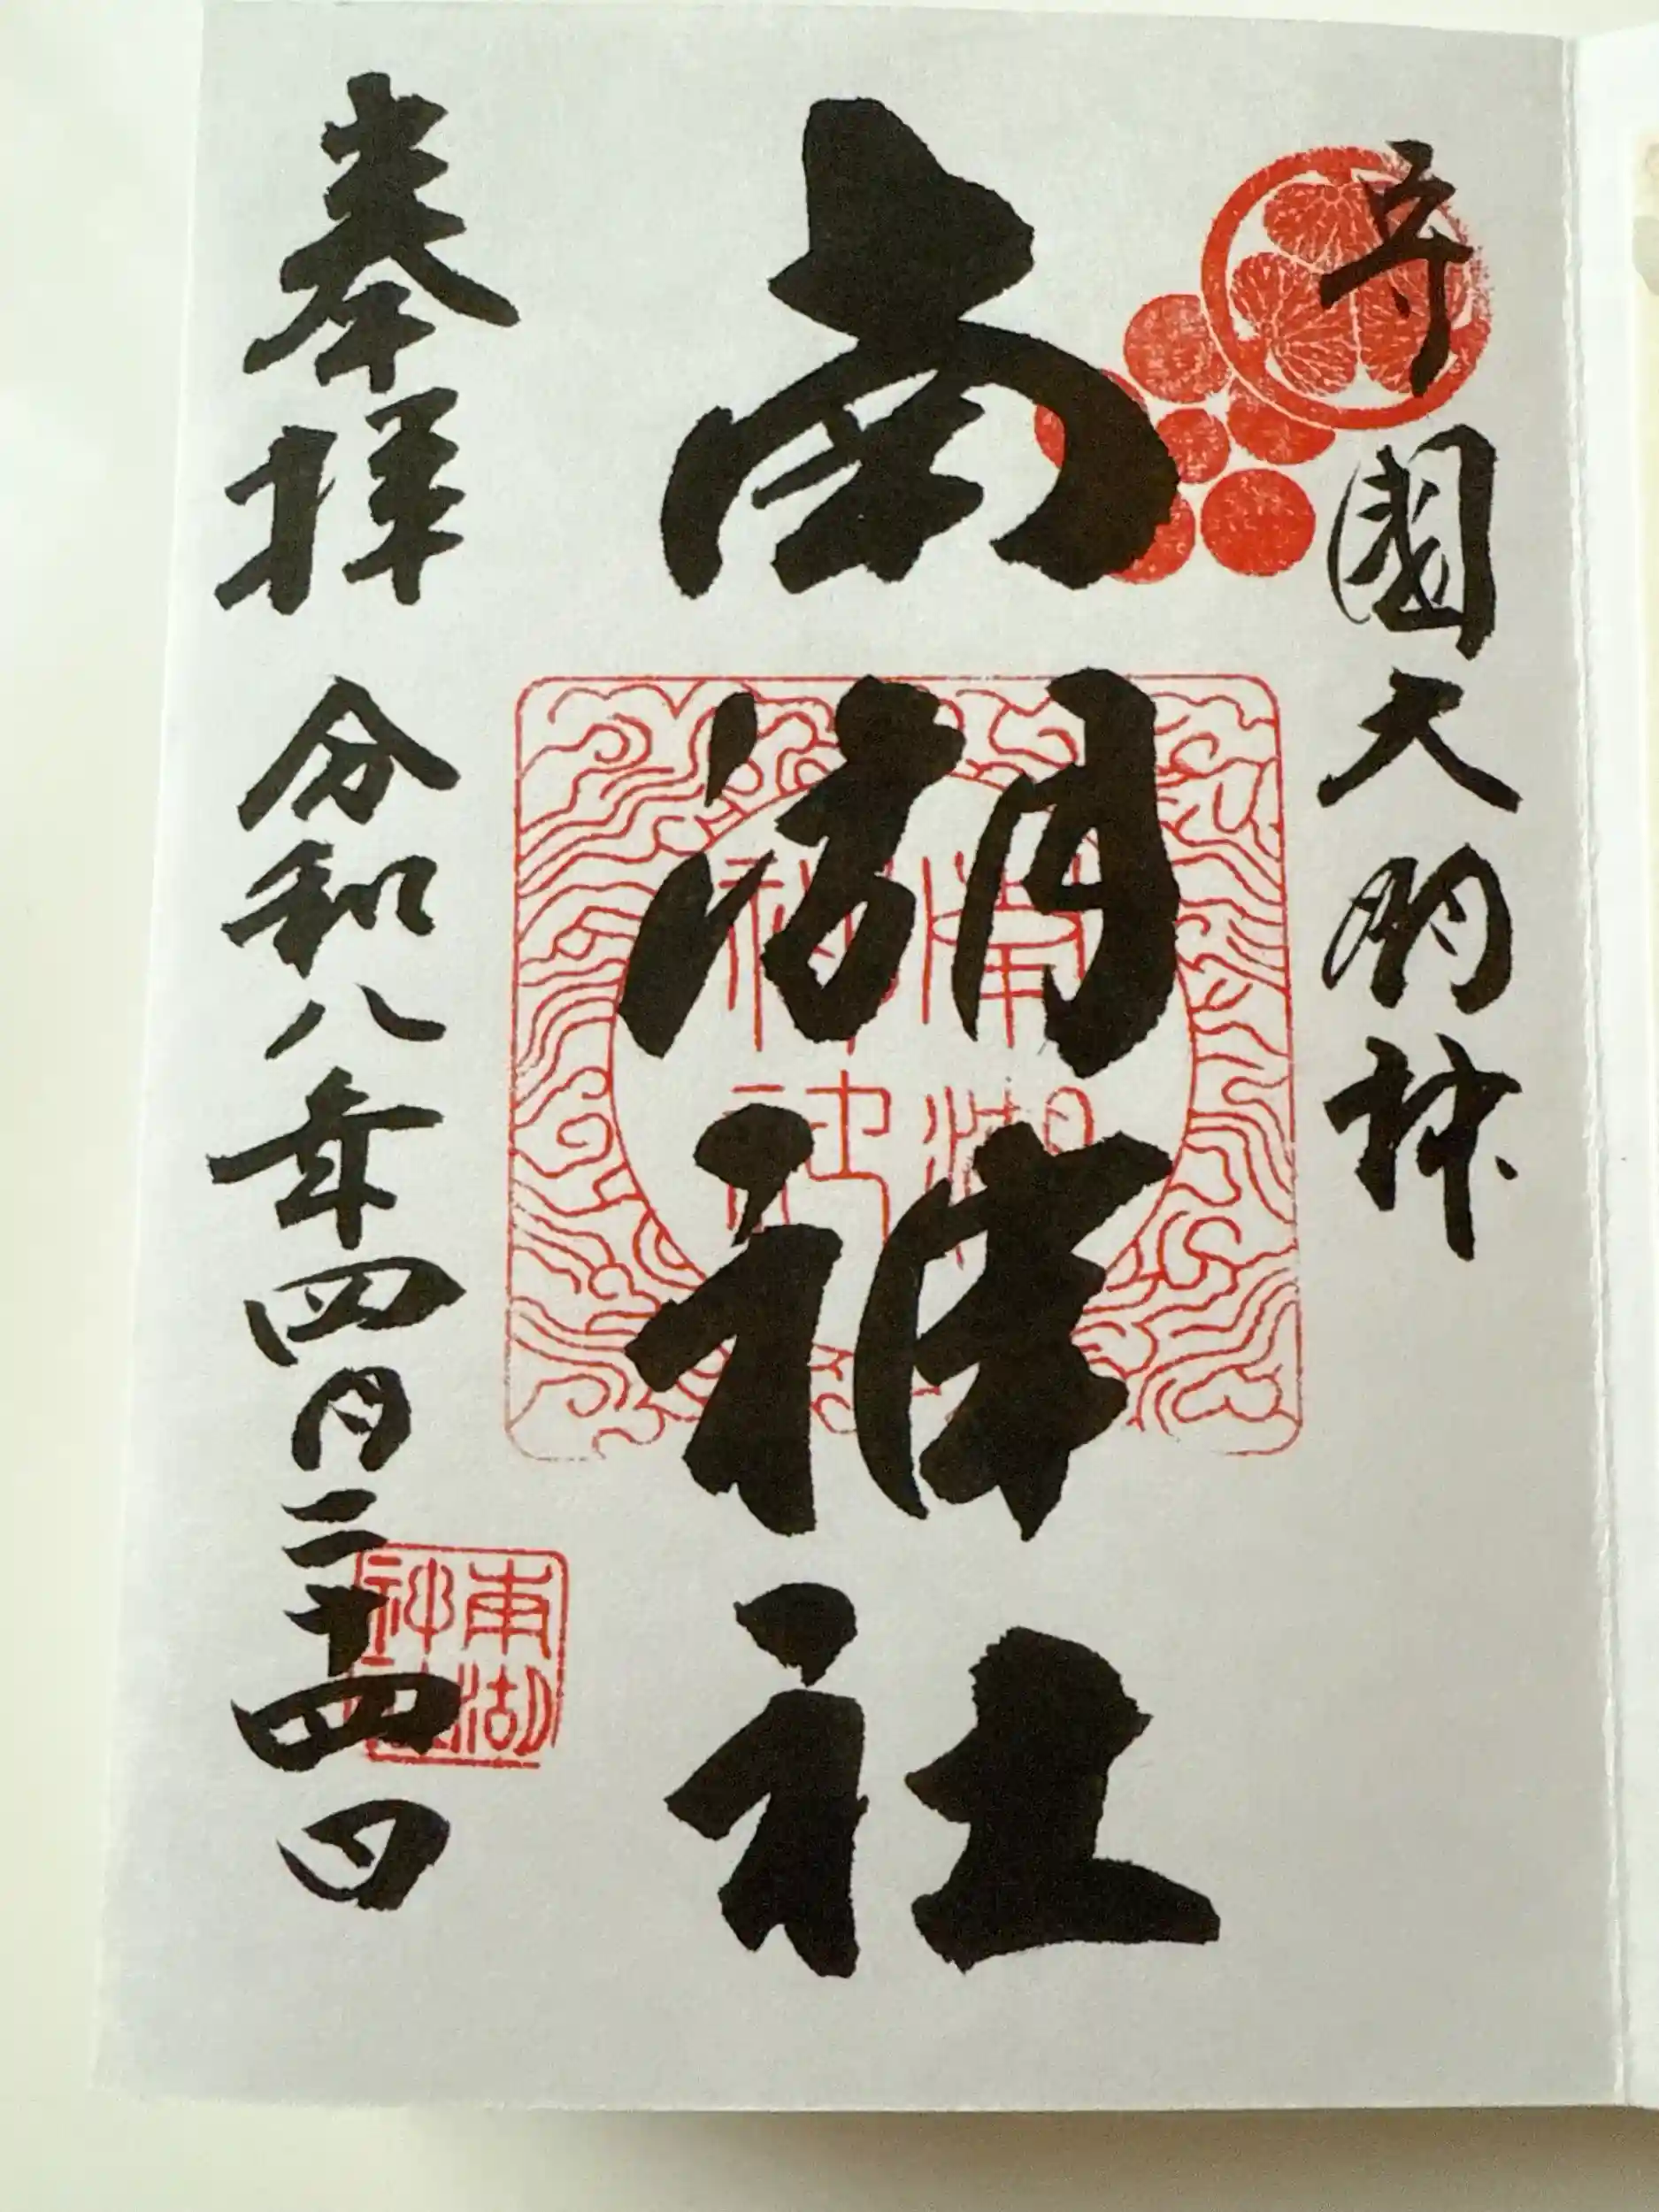 守國大明神
南湖神社
奉拝 令和八年四月二十四日
南湖神社
南湖神社